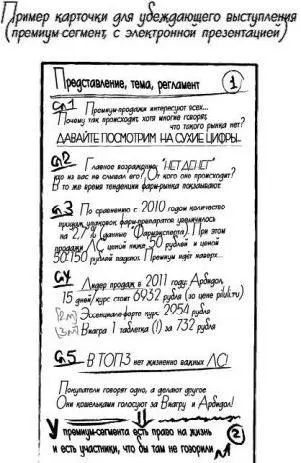 Пример карточки для убеждающего выступления
(премиум-сегмент, с электронной презентацией)
Представление, тема, регламент 1
Сл.1 Премиум-продажи интересуют всех...
Почему так происходит, хотя многие говорят,
что такого рынка нет?
ДАВАЙТЕ ПОСМОТРИМ НА СУХИЕ ЦИФРЫ...
Сл.2 Главное возражение: "НЕТ ДЕНЕГ"
кто из вас не слышал его? От кого оно происходит?
В то же время тенденции фарм-рынка показывают:
Сл.3 По сравнению с 2010 годом количество
продаж упаковок фарм-препаратов увеличилось
на 2,7% (данные "Фармэксперта"). При этом
продажи ЛС ценой ниже 50 рублей и ценой
50-150 рублей падают. Премиум идёт наверх...
Сл.4 Лидер продаж в 2011 году: Арбидол
15 дней/курс стоит 6932 рубля (по цене piluli.ru)
[2м] Эссенциале-форте курс 2054 рубля
[3м] Виагра 1 таблетка (!) за 732 рубля
Сл.5 В ТОП-3 нет жизненно важных ЛС!
Покупатели говорят одно, а делают другое
Они кошельками голосуют за Виагру и Арбидол!
У премиум-сегмента есть право на жизнь
и есть участники, что бы там не говорили 2